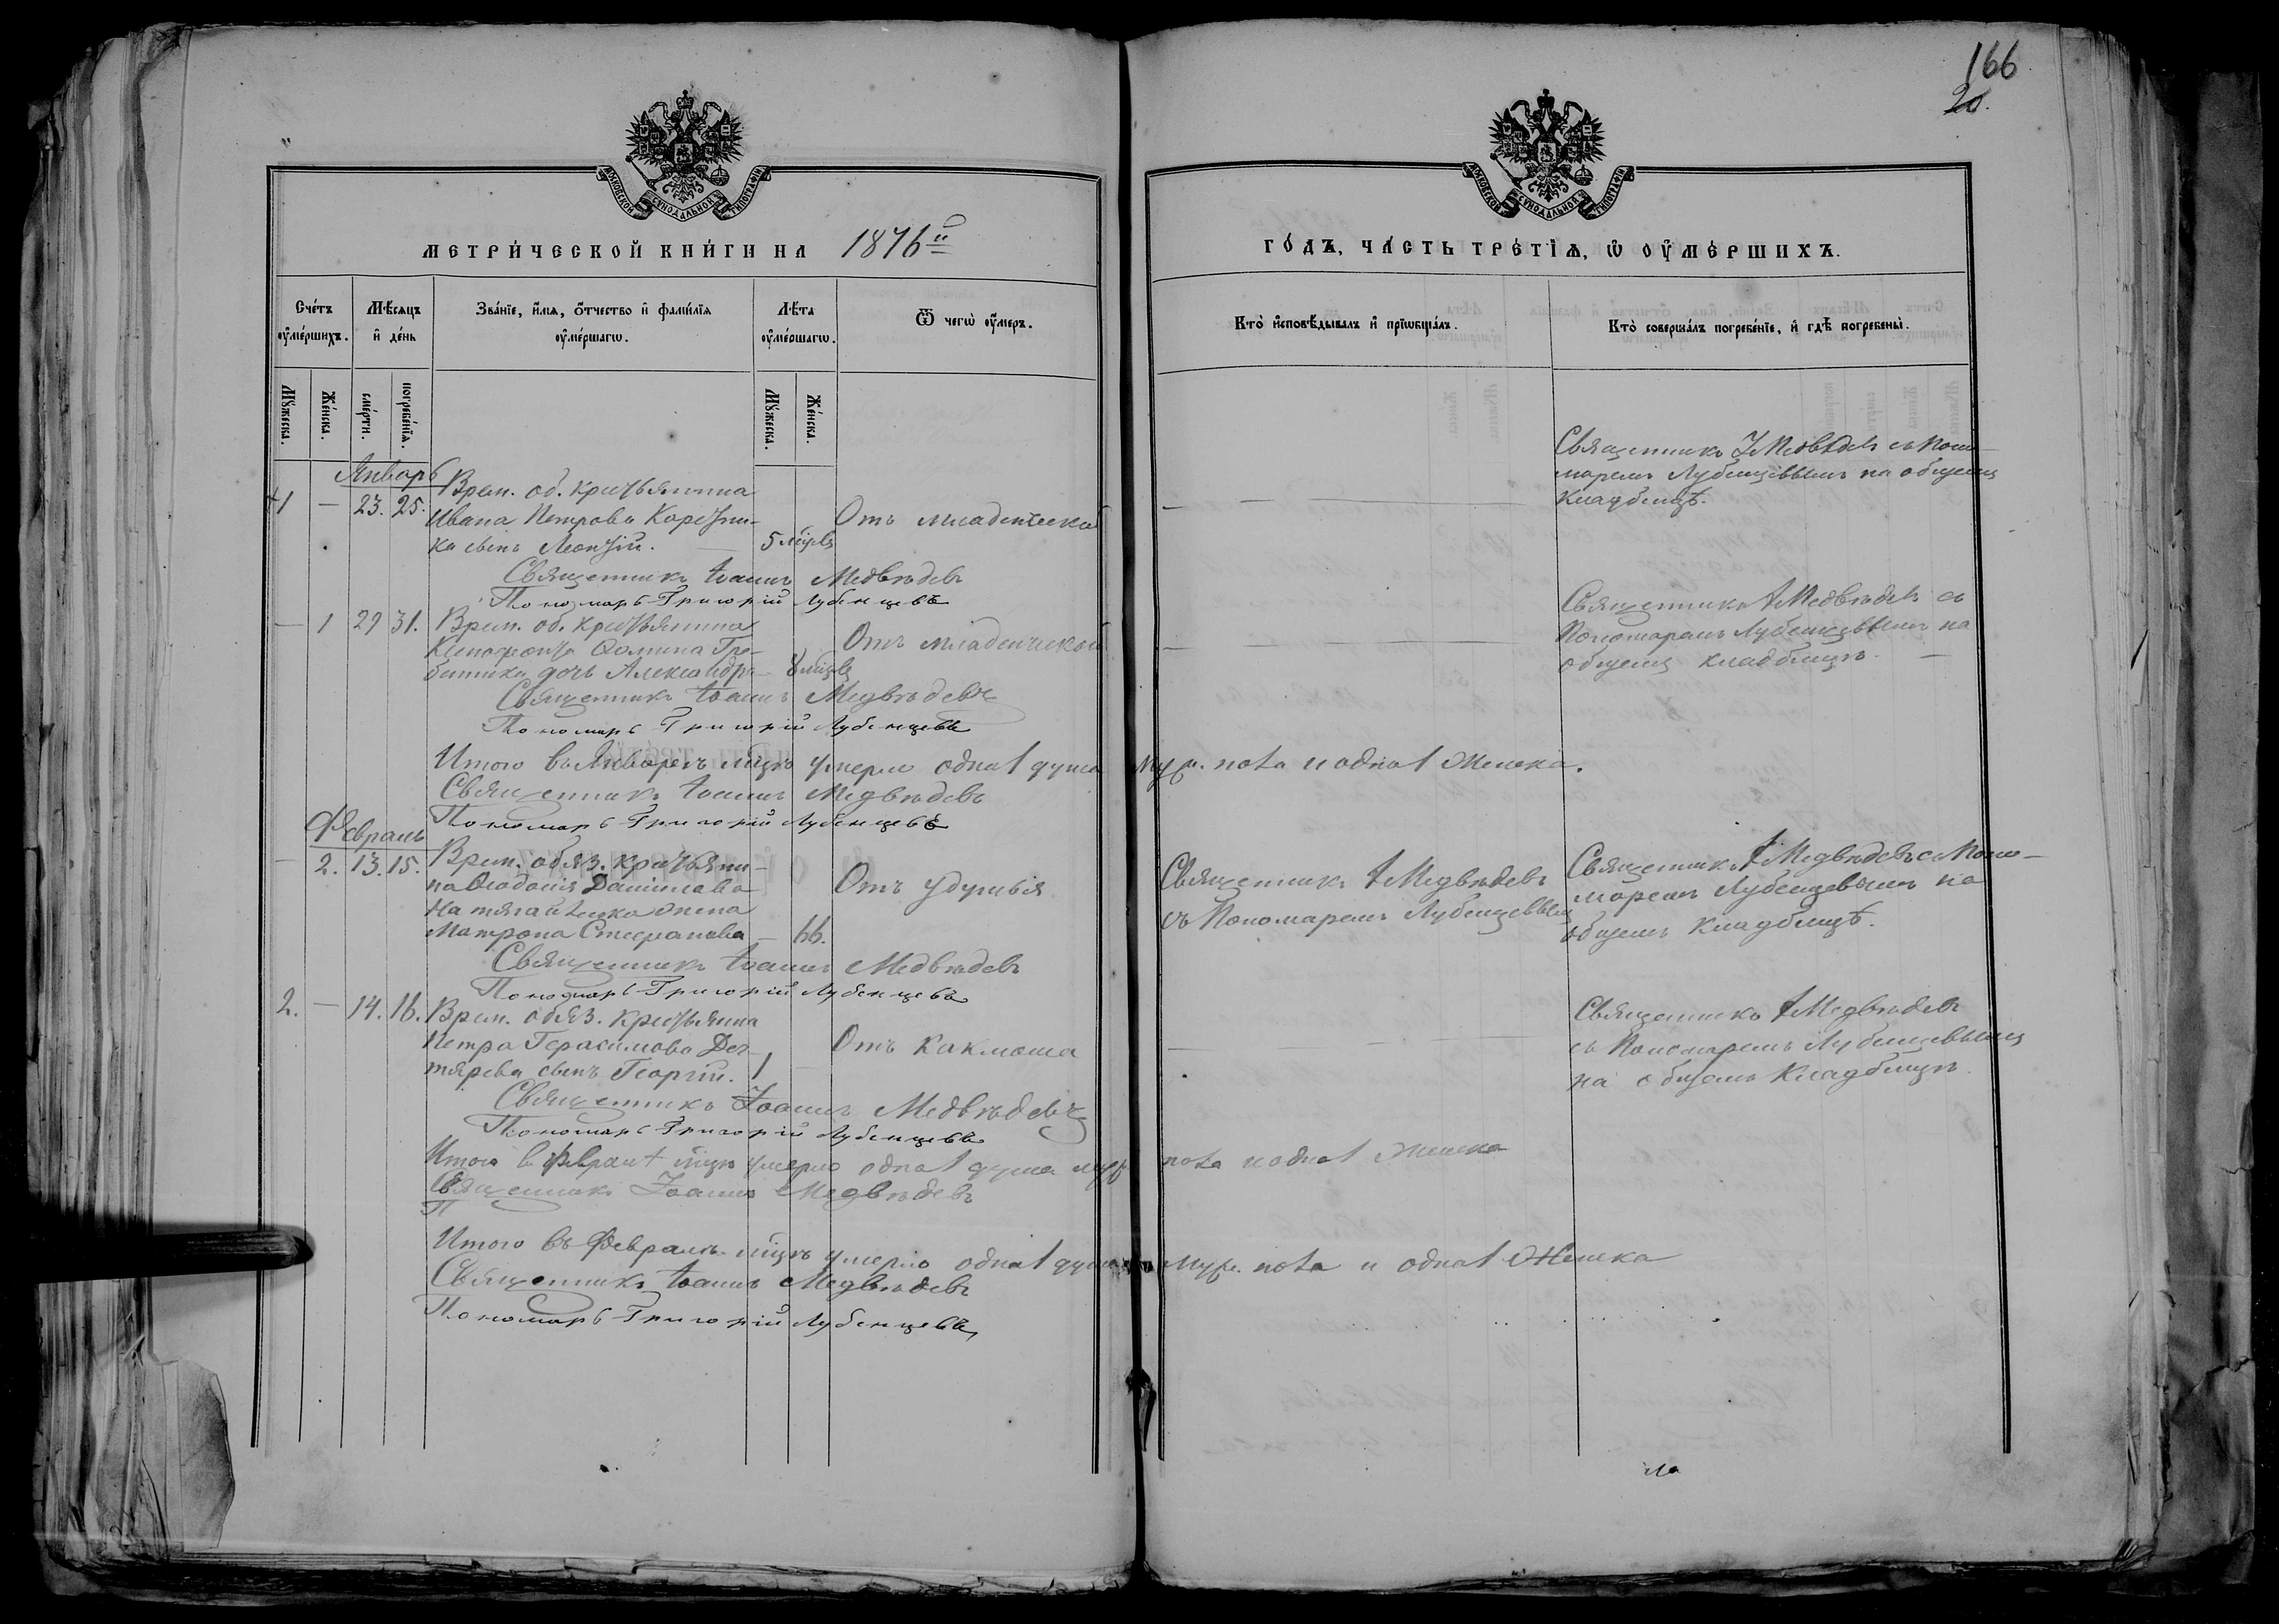 166
20.
МОСКОВСКОЙ СѴНОДАЛЬНОЙ ТИПОГРАФІИ
МОСКОВСКОЙ СѴНОДАЛЬНОЙ ТИПОГРАФІИ
МЕТРИ́ЧЕСКОЙ КНИ́ГИ НА 1876й
ГО́ДЪ, ЧА́СТЬ ТРЕ́ТІѦ, Ѡ҆ ОУ҆МЕ́РШИХЪ.
Сче́тъ оу҆ме́ршихъ.
Мѣ́сѧцъ и҆ де́нь
Зва́нїе, и҆́мѧ, ѻ҆́тчество и҆ фами́лїѧ оу҆ме́ршагѡ.
Лѣ́та оу҆ме́ршагѡ.
Ѿ чегѡ̀ оу҆́меръ.
Кто̀ и҆сповѣ́дывалъ и҆ прїѡбща́лъ.
Кто̀ соверша́лъ погребе́нїе, и҆ гдѣ̀ погребены̀.
Мꙋ́жеска.
Же́нска.
сме́рти.
погребе́нїѧ.
Мꙋ́жеска.
Же́нска.
Январь
1 — 23. 25.
Врем. об. крестьянина
Ивана Петрова
ка сынъ Леонтій. 5 мѣсцъ
Отъ младенческой
Священникъ І Медвѣдевъ съ Поно-
маремъ Лубенцевымъ на общемъ
кладбищѣ.
Священникъ Іоаннъ Медвѣдевъ
Пономарь Григорій Лубенцевъ
— 1 29 31.
Врем. об. крестьянина
Ксенофонта Фомина Гре-
бенника дочь Александра
Отъ младенческой
Священникъ І Медвѣдевъ съ
Пономаремъ Лубенцевымъ на
общемъ кладбищѣ. —
Священникъ Іоаннъ Медвѣдевъ
Пономарь Григорій Лубенцевъ
Итого въ Январѣ мѣсцѣ умерло одна 1 душа муж. пола и одна 1 женска.
Священникъ Іоаннъ Медвѣдевъ
Пономарь Григорій Лубенцевъ
Февраль
— 2. 13. 15.
Врем. обяз. крестьяни-
на Ѳеодосія Даниилова
жена
Матрона Стефанова — 66.
Отъ удушья
Священникъ І Медвѣдевъ
съ Пономаремъ Лубенцевымъ
Священникъ І Медвѣдевъ съ Поно-
маремъ Лубенцевымъ на
общемъ кладбищѣ.
Священникъ Іоаннъ Медвѣдевъ
Пономарь Григорій Лубенцевъ
2. — 14. 16.
Врем. обяз. крестьянина
Петра Герасимова Дех-
тярева сынъ Георгій. 1
Отъ
Священникъ І Медвѣдевъ
съ Пономаремъ Лубенцевымъ
на общемъ кладбищѣ
Священникъ Іоаннъ Медвѣдевъ
Пономарь Григорій Лубенцевъ
Итого въ мѣсцѣ умерло одна 1 душа муж. пола и одна 1 женска
Священникъ Іоаннъ Медвѣдевъ
П
Итого въ Февралѣ мѣсцѣ умерло одна 1 душа муж. пола и одна 1 женска
Священникъ Іоаннъ Медвѣдевъ
Пономарь Григорій Лубенцевъ